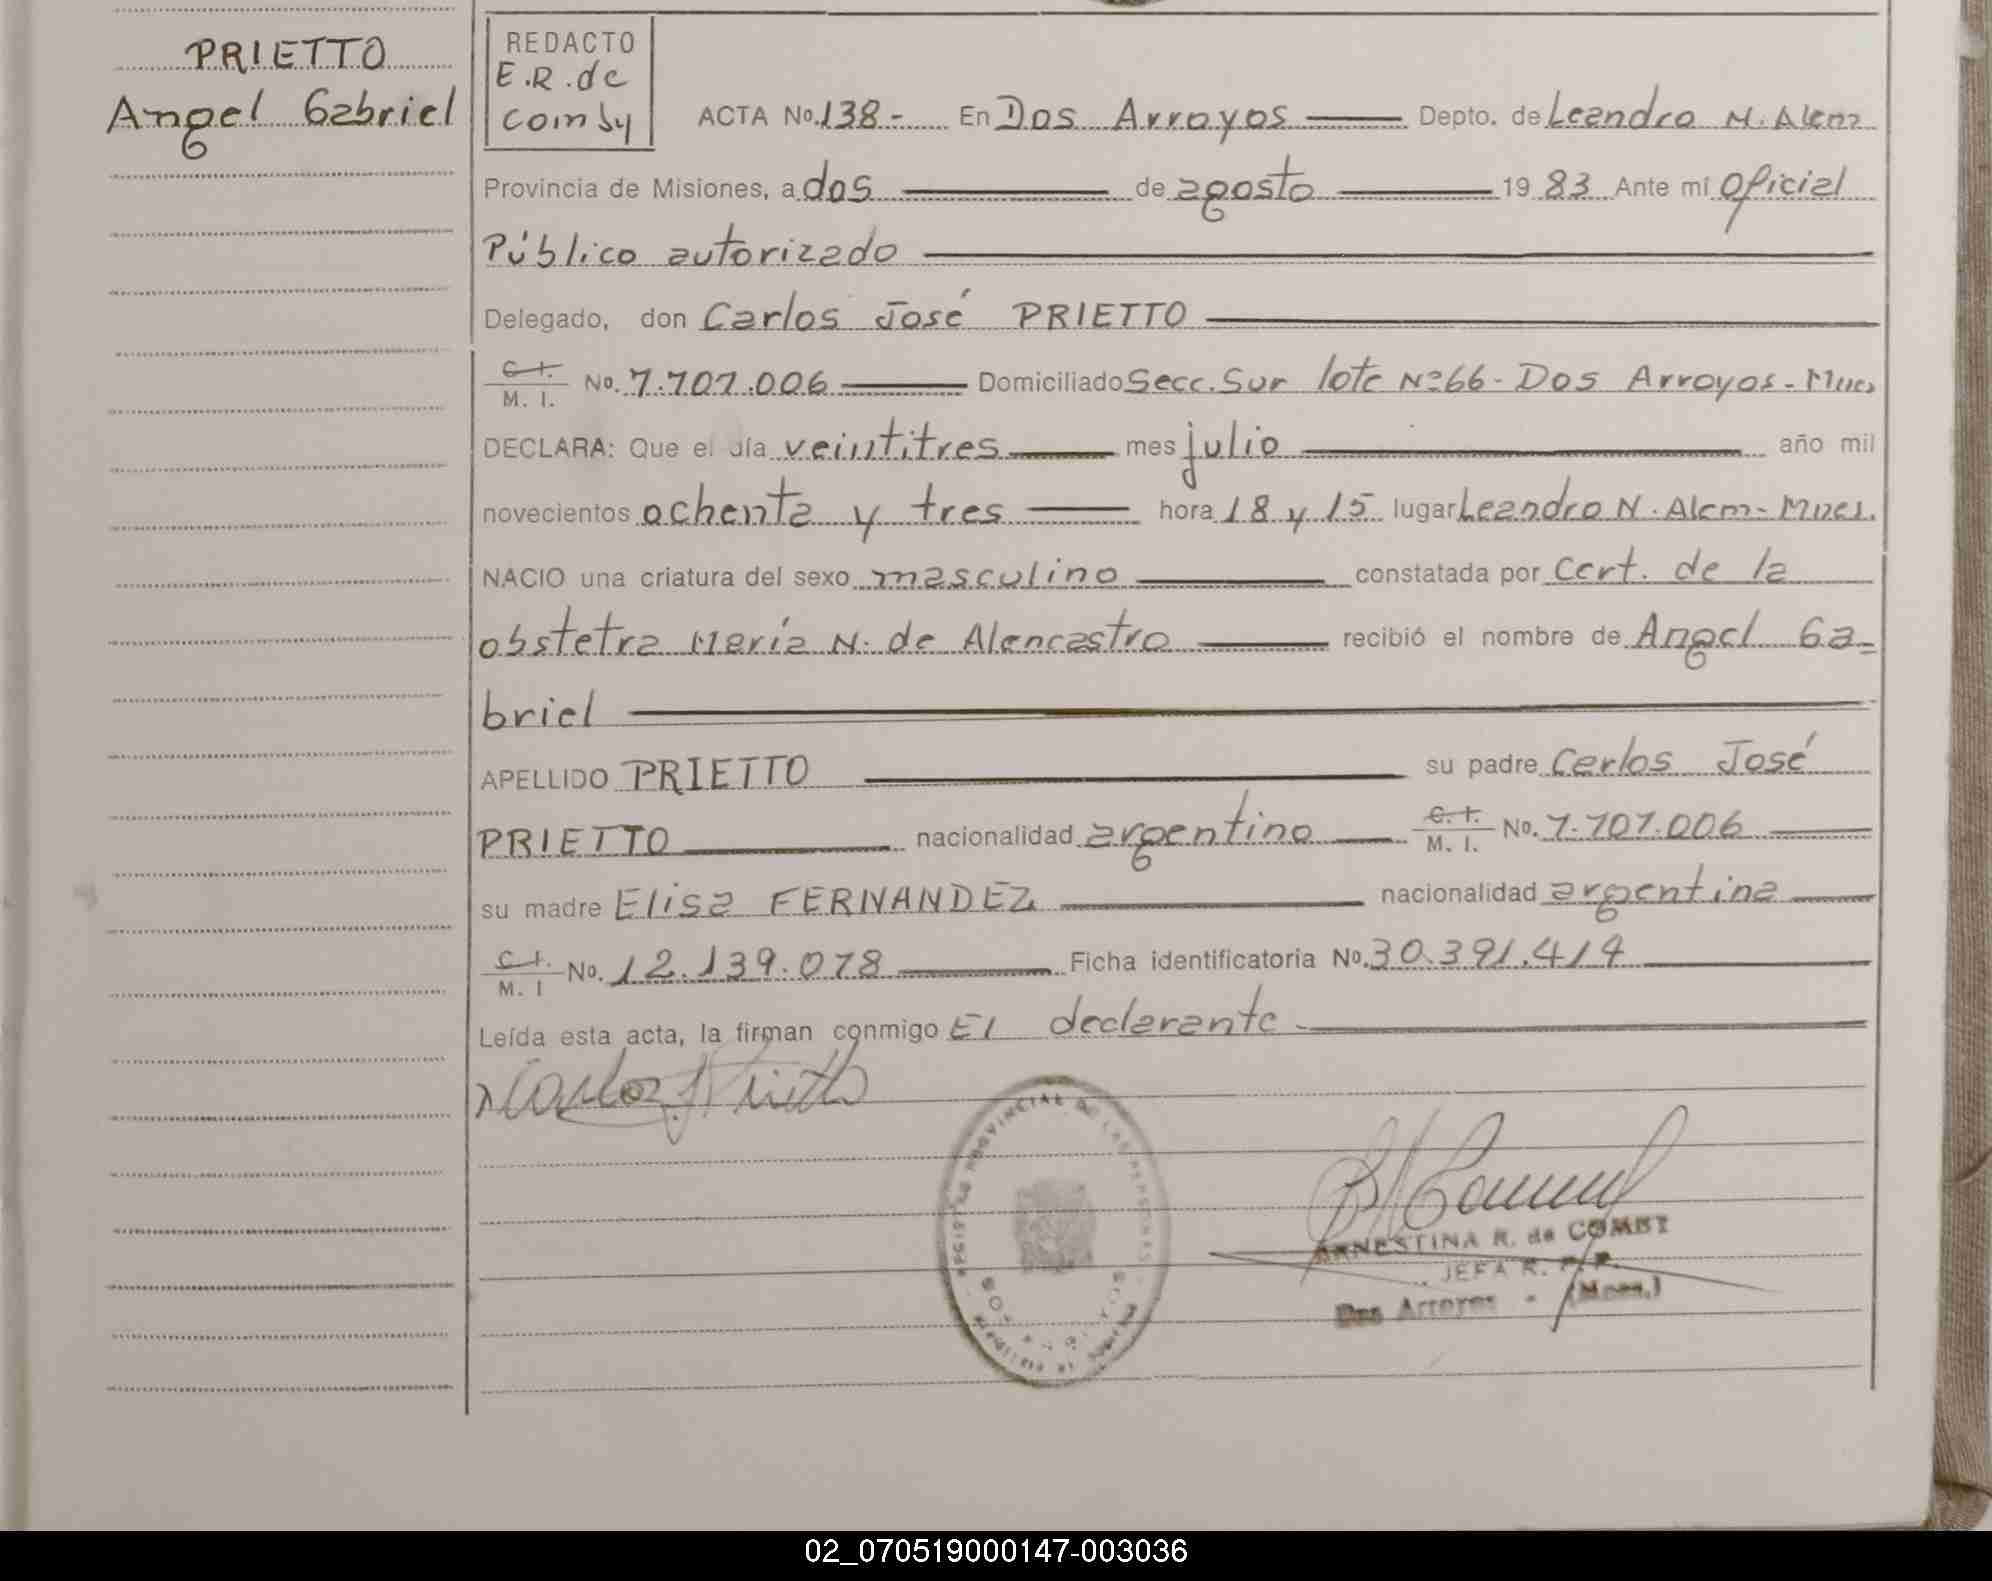 PRIETTO
Angel Gabriel
REDACTO
E.R. de
Comby
ACTA No. 138- En Dos Arroyos Depto. de Leandro N. Alem
Provincia de Misiones, a dos de agosto 1983 Ante mí Oficial
Público autorizado
Delegado, don Carlos José PRIETTO
C. I. M. I. No. 7.707.006 Domiciliado Secc. Sur lote Nº 66 - Dos Arroyos - Mnes
DECLARA: Que el día veintitres mes julio año mil
novecientos ochenta y tres hora 18 y 15 lugar Leandro N. Alem - Mnes.
NACIO una criatura del sexo masculino constatada por Cert. de la
obstetra María N. de Alencastro recibió el nombre de Angel Ga-
briel
APELLIDO PRIETTO su padre Carlos José
PRIETTO nacionalidad argentino C. I. M. I. No. 7.707.006
su madre Elisa FERNANDEZ nacionalidad argentina
C. I. M. I No. 12.139.078 Ficha identificatoria No. 30.391.414
Leída esta acta, la firman conmigo El declarante
REGISTRO PROVINCIAL DE LAS PERSONAS
DOS ARROYOS
ERNESTINA R. de COMBY
JEFA R. P. P.
Dos Arroyos - (Mnes.)
02_070519000147-003036